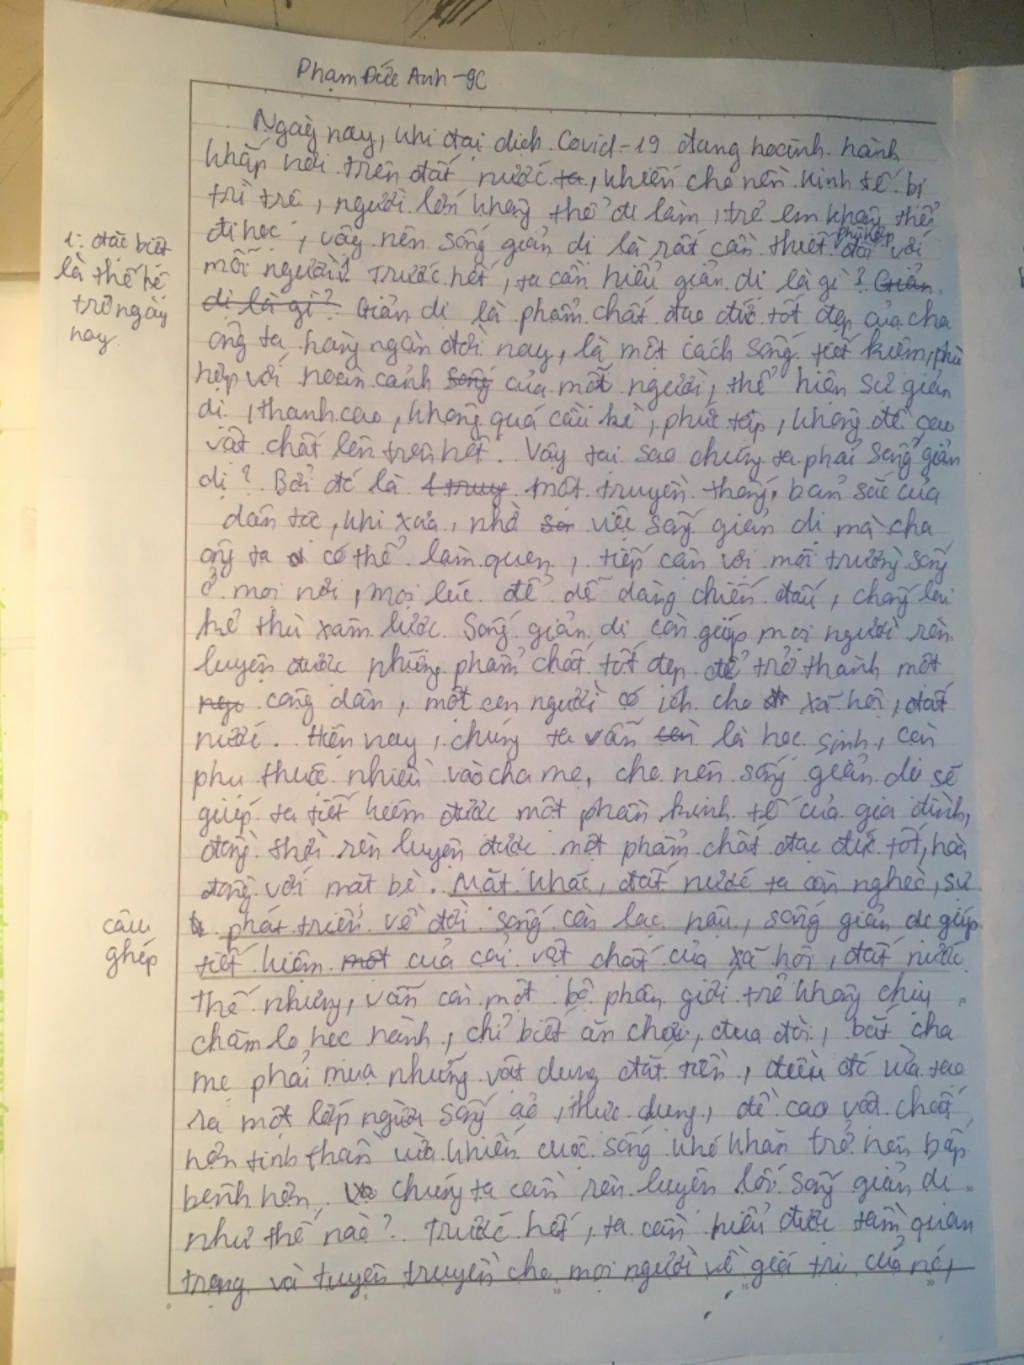 Phạm Đức Anh - 9C
Ngày nay, khi đại dịch Covid-19 đang hoành hành
khắp nơi trên đất nước ta, khiến cho nền kinh tế bị
trì trệ, người lớn không thể đi làm, trẻ em không thể
đi học, vậy nên sống giản dị là rất cần thiết phù hợp đối với
mỗi người! Trước hết, ta cần hiểu giản dị là gì? Giản
dị là gì? Giản dị là phẩm chất đạo đức tốt đẹp của cha
ông ta hàng ngàn đời nay, là một cách sống tiết kiệm, phù
hợp với hoàn cảnh sống của mỗi người, thể hiện sự giản
dị, thanh cao, không quá cầu kì, phức tạp, không đề cao
vật chất lên trên hết. Vậy tại sao chúng ta phải sống giản
dị? Bởi đó là 1 truy một truyền thống, bản sắc của
dân tộc, khi xưa, nhờ việc sống giản dị mà cha
ông ta có thể làm quen, tiếp cận với môi trường sống
ở mọi nơi, mọi lúc để dễ dàng chiến đấu, chống lại
kẻ thù xâm lược. Sống giản dị còn giúp mọi người rèn
luyện được những phẩm chất tốt đẹp để trở thành một
công dân, một con người có ích cho xã hội, đất
nước. Hiện nay, chúng ta vẫn còn là học sinh, còn
phụ thuộc nhiều vào cha mẹ, cho nên sống giản dị sẽ
giúp ta tiết kiệm được một phần kinh tế của gia đình,
đồng thời rèn luyện được một phẩm chất đạo đức tốt, hòa
đồng với mặt bè. Mặt khác, đất nước ta còn nghèo, sự
phát triển về đời sống còn lạc hậu, sống giản dị giúp
tiết kiệm một của cải vật chất của xã hội, đất nước.
Thế nhưng, vẫn còn một bộ phận giới trẻ không chịu
chăm lo học hành, chỉ biết ăn chơi, đua đòi, bắt cha
mẹ phải mua những vật dụng đắt tiền, điều đó vừa tạo
ra một lớp người sống ảo, thực dụng, đề cao vật chất
hơn tinh thần vừa khiến cuộc sống khó khăn trở nên bấp
bênh hơn. Chúng ta cần rèn luyện lối sống giản dị
như thế nào? Trước hết, ta cần hiểu được tầm quan
trọng và tuyên truyền cho mọi người về giá trị của nó,
1: đặc biệt
là thế hệ
trẻ ngày
nay.
câu
ghép